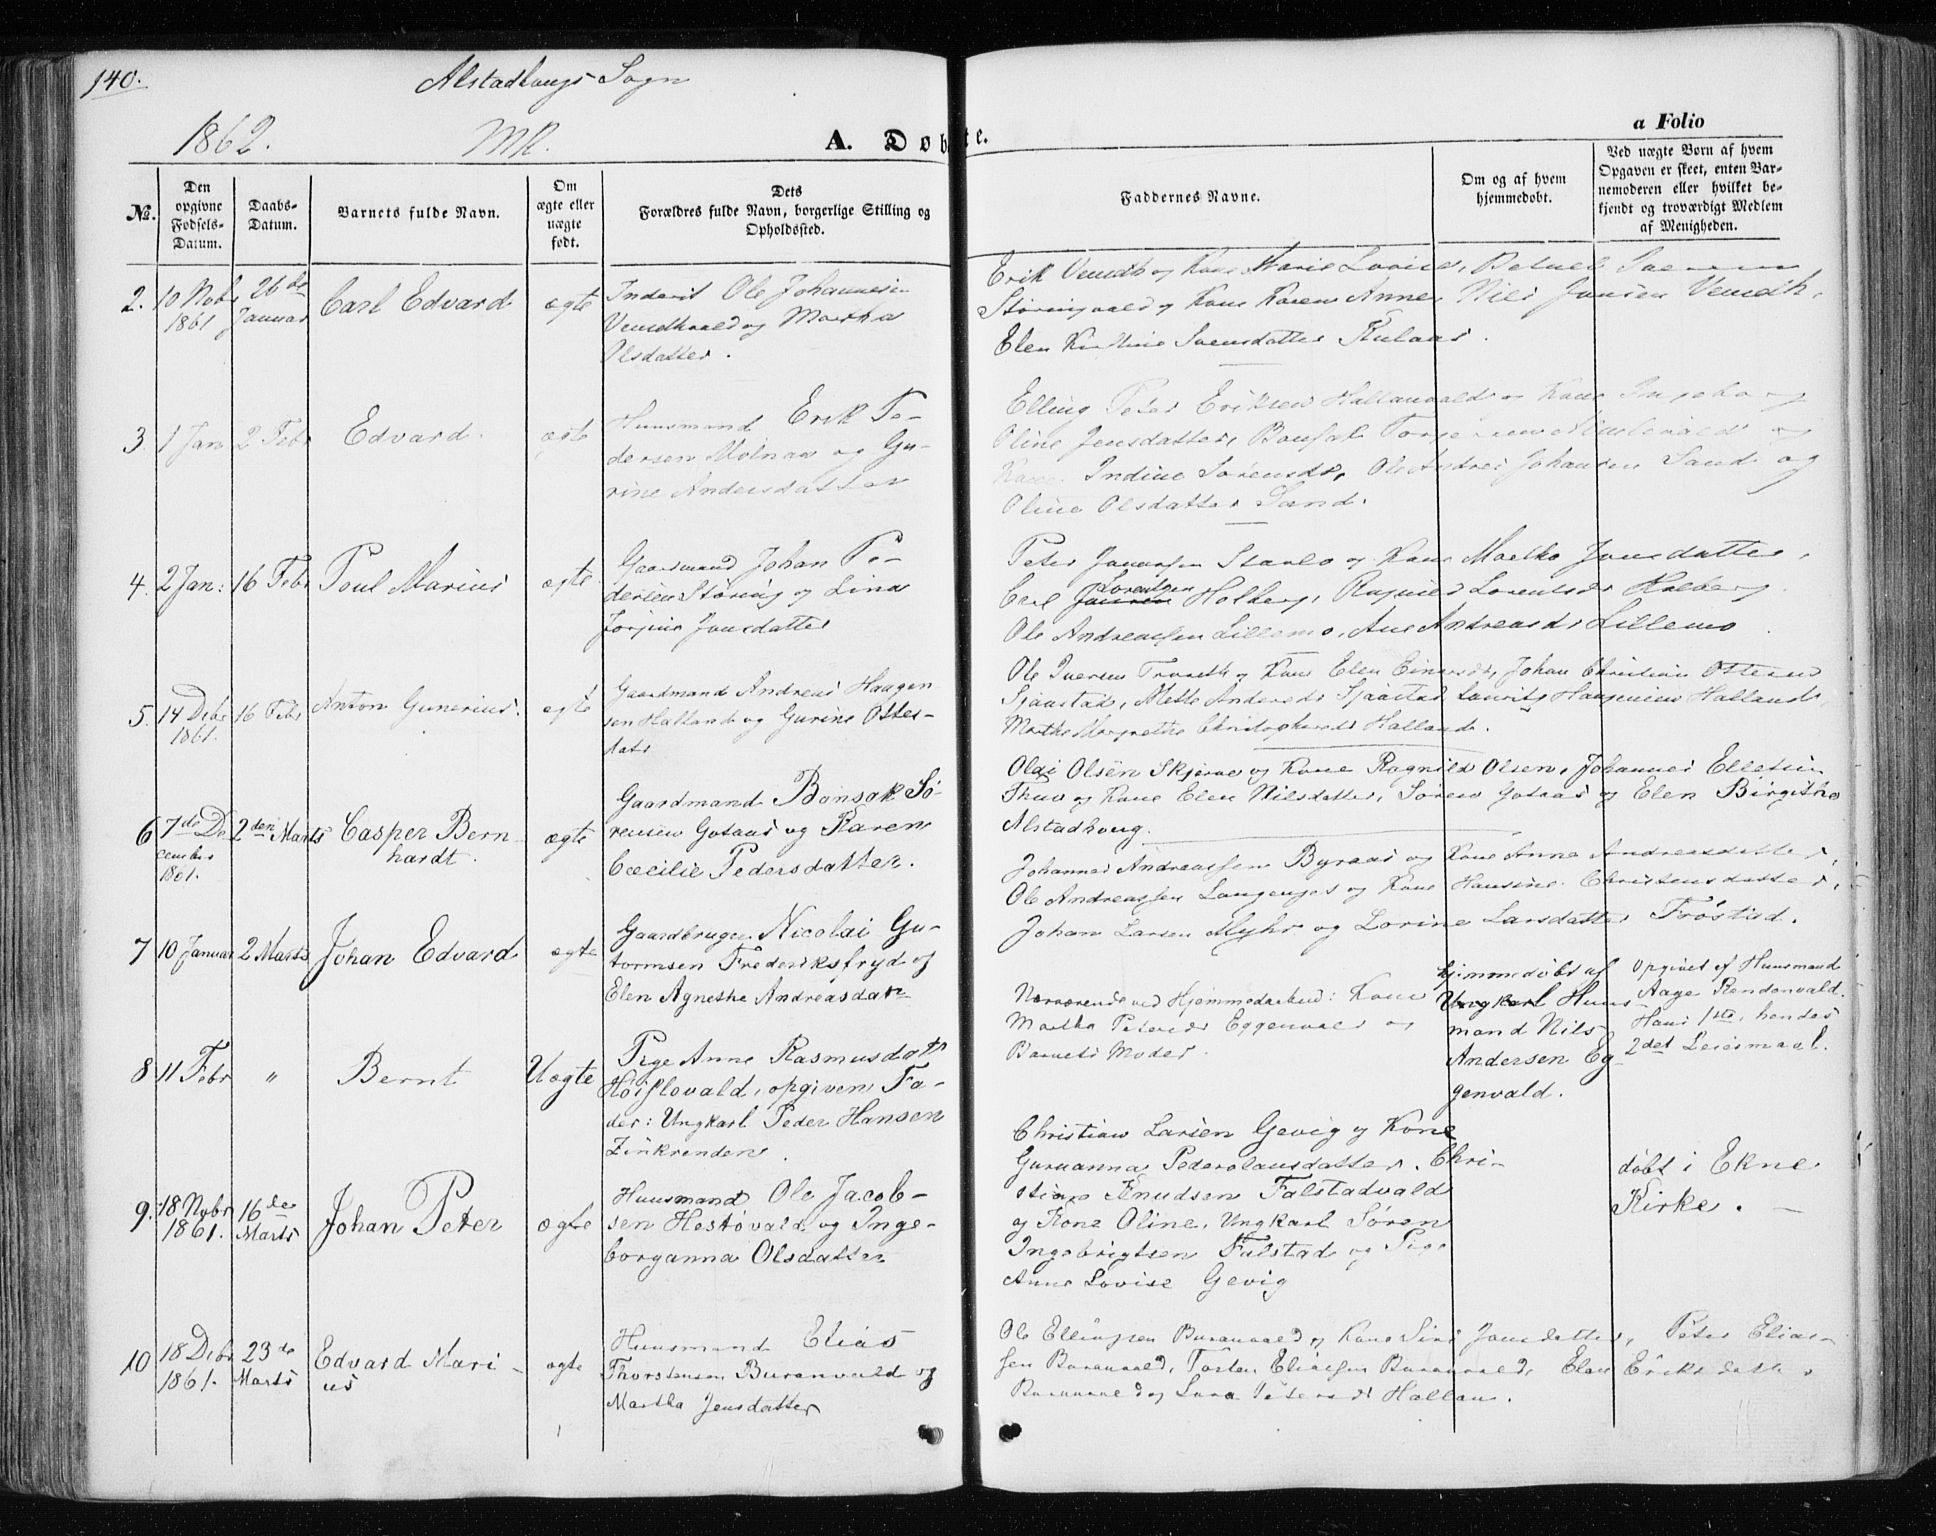 140.
Alstadhougs Sogn
1862.
MR.
A. Døbte.
a Folio
No.
Den opgivne Fødsels-Datum.
Daabs-Datum.
Barnets fulde Navn.
Om ægte eller uægte født.
Dets Forældres fulde Navn, borgerlige Stilling og Opholdssted.
Faddernes Navne.
Om og af hvem hjemmedøbt.
Ved uægte Børn af hvem Opgaven er skeet, enten Barnemoderen eller hvilket bekjendt og troværdigt Medlem af Menigheden.
2. 10 Nobr 1861
26de Januar
Carl Edvard
ægte
Inderst Ole Johannesen
Vendhvald og Martha
Olsdatter.
Erik Vendh og Kone Marie Lovise,
Støringvald og Kone Karen Anne, Nils Jansen Vendh,
Elen Kirstine Svensdatter Rulaas.
3. 1 Jan
2 Febr
Edvard.
ægte
Huusmand Erik Pe-
dersen Molnaa og Gu-
rine Andersdatter
Elling Peter Eriksen Hallanvald og Kone Ingeborg
Oline Jensdatter,
Kone Indine Sørensdr, Ole Andreas Johansen Sand og
Oline Olsdatter Sand.
4. 2 Jan:
16 Febr
Poul Marius
ægte
Gaardmand Johan Pe-
dersen Støring og Lina
Jørgine Jansdatter
Peter Janersen Starlo og Kone Martha Jansdatter,
Lorentsen
Carl Jansen Holberg, Ragnild Lorentsdr Holberg
Ole Andreassen Lillemo, Ane Andreasdr Lillemo.
5. 14 Debr 1861.
16 Febr
Anton Gunerius.
ægte
Gaardmand Andreas Haagen-
sen Halland og Gurine Ottes-
datr
Ole Iversen og Kone Elen Einersdr, Johan Christian Ottersen
Sjaastad, Mette Andersdr Sjaastad Laurits Haagensen Halland,
Marthe Margrethe Christophersdr Halland.
6 7de December 1861.
2den Marts
Casper Bern-
hardt.
ægte
Gaardmand Bonsak Sø-
rensen Gotaas og Karen
Cæcilie Pedersdatter.
Olai Olsen Skjerve og Kone Ragnild Olsen, Johannes Ellefsen
Skuv og Kone Elen Nilsdatter, Søren Gotaas og Elen Birgithe
Alstadhoug.
7 10 Januar
2 Marts
Johan Edvard
ægte
Gaardbruger Nicolai Gu-
tormsen Frederiksfryd og
Elen Agnethe Andreasdatr
Johannes Andreassen Byraas og Kone Anne Andreasdatter,
Ole Andreassen Langenges og Kone Hansine Christensdatter,
Johan Larsen Myhr og Lorine Larsdatter Frøstad.
8 11 Febr
"
Bernt
Uægte
Pige Anne Rasmusdatr
Høiflovald, opgiven Fa-
der: Ungkarl Peder Hansen
Finkrenden.
Nærværende ved Hjemmedaaben: Kone
Martha Petersdr Eggenvald og
Barnets Moder.
hjemmedøbt af
Ungkarl Huus-
mand Nils
Andersen Eg-
genvald.
Opgivet af Huusmand
Aage Rendenvald.
Hans 1ste, hendes
2det Leiermaal.
9. 18 Nobr 1861.
16de Marts
Johan Peter
ægte
Huusmand Ole Jacob-
sen Hestøvald og Inge-
borganna Olsdatter
Christian Larsen Gevig og Kone
Guruanna Pederolausdatter. Chri-
stian Knudsen Falstadvald
og Kone Oline, Ungkarl Søren
Ingebrigtsen Falstad og Pige
Anne Lovise Gevig
døbt i Ekne
Kirke. -
10 18 Debr 1861.
23de Marts
Edvard Mari-
us
ægte
Huusmand Elias
Thorstensen Buranvald og
Martha Jensdatter
Ole Ellingsen Buranvald og Kone Siri Jansdatter, Peter Elias-
sen Buranvald, Torsten Eliassen Buranvald, Elen Eriksdatter
Buranvald og Sara Petersdr Hallan.